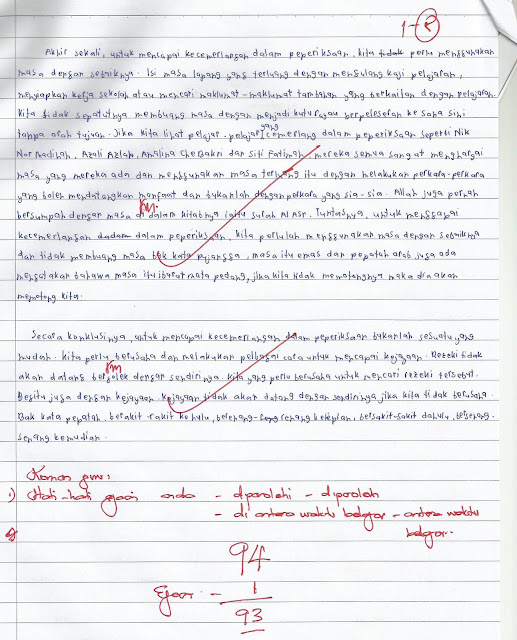 1-2
Akhir sekali, untuk mencapai kecemerlangan dalam peperiksaan, kita tidak perlu menggunakan
masa dengan sebaiknya. Isi masa lapang yang terluang dengan mengulang kaji pelajaran,
menyiapkan kerja sekolah atau mencari maklumat-maklumat tambahan yang berkaitan dengan pelajaran.
Kita tidak sepatutnya membuang masa dengan menjadi kutu rayau berpeleseran ke sana sini
tanpa arah tujuan. Jika kita lihat pelajar-pelajar yang cemerlang dalam peperiksaan seperti Nik
Nor Madihah, Azali Azlan, Amalina Che Bakri dan Siti Fatimah, mereka semua sangat menghargai
masa yang mereka ada dan menggunakan masa terluang itu dengan melakukan perkara-perkara
yang boleh mendatangkan manfaat dan bukanlah dengan perkara yang sia-sia. Allah juga pernah
bersumpah dengan masa di dalam kitabnya iaitu surah Al Asr. Tuntasnya, untuk menggapai
kecemerlangan dadam dalam peperiksaan, kita perlulah menggunakan masa dengan sebaiknya
dan tidak membuang masa bak kata pujangga, masa itu emas dan pepatah arab juga ada
mengatakan bahawa masa itu ibarat mata pedang, jika kita tidak memotongnya maka dia akan
memotong kita.
Secara konklusinya, untuk mencapai kecemerlangan dalam peperiksaan bukanlah sesuatu yang
mudah. Kita perlu berusaha dan melakukan pelbagai cara untuk mencapai kejayaan. Rezeki tidak
akan datang bergolek dengan sendirinya. Kita yang perlu berusaha untuk mencari rezeki tersebut.
Begitu juga dengan kejayaan. Kejayaan tidak akan datang dengan sendirinya jika kita tidak berusaha.
Bak kata pepatah, berakit-rakit ke hulu, berenang-renang ke tepian, bersakit-sakit dahulu, bersenang-
senang kemudian.
Komen guru:
1) Hati-hati ejaan anda - diperolehi - diperoleh
- di antara waktu belajar - antara waktu
belajar.
94
Ejaan - 1
93